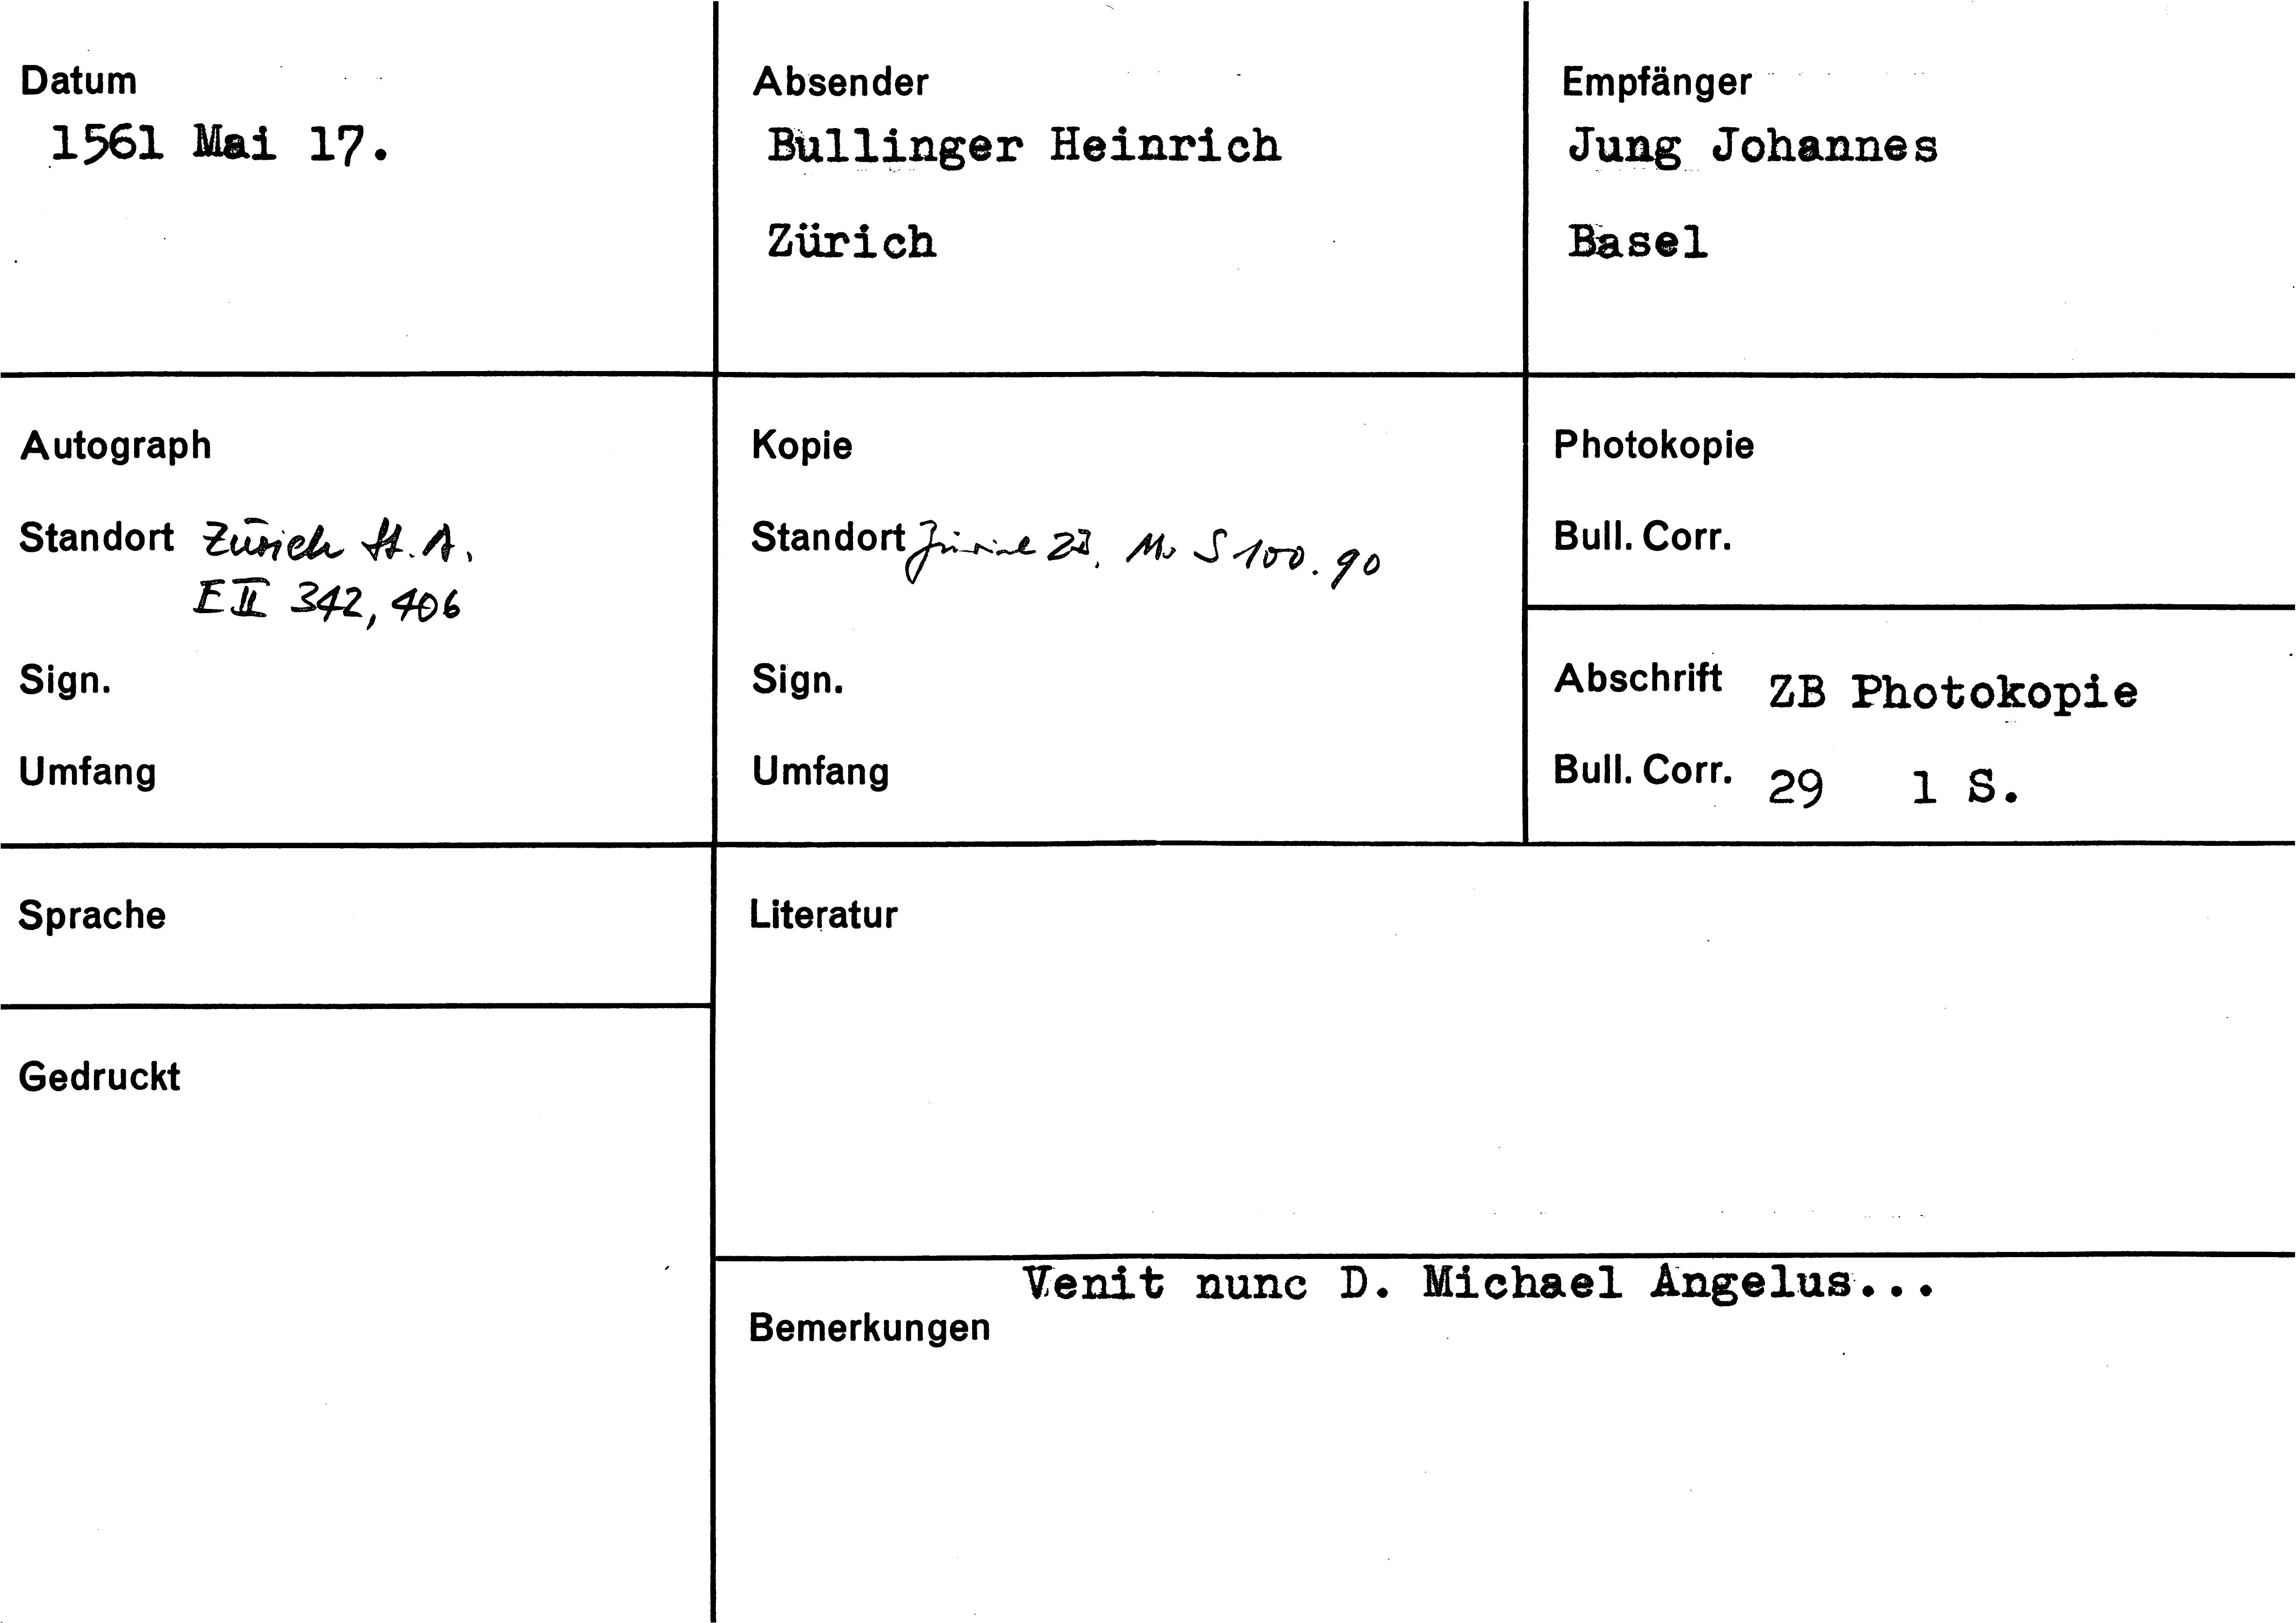 Datum
1561 Mai 17.
Absender
Bullinger Heinrich
Zürich
Empfänger
Jung Johannes
Basel
Autograph
Standort Zürich St. A.
E II 342, 406
Sign.
Umfang
Kopie
Standort Zürich ZB, Ms S 100. 90
Sign.
Umfang
Photokopie
Bull. Corr.
Abschrift ZB Photokopie
Bull. Corr. 29 1 S.
Sprache
Literatur
Gedruckt
Venit nunc D. Michael Angelus...
Bemerkungen